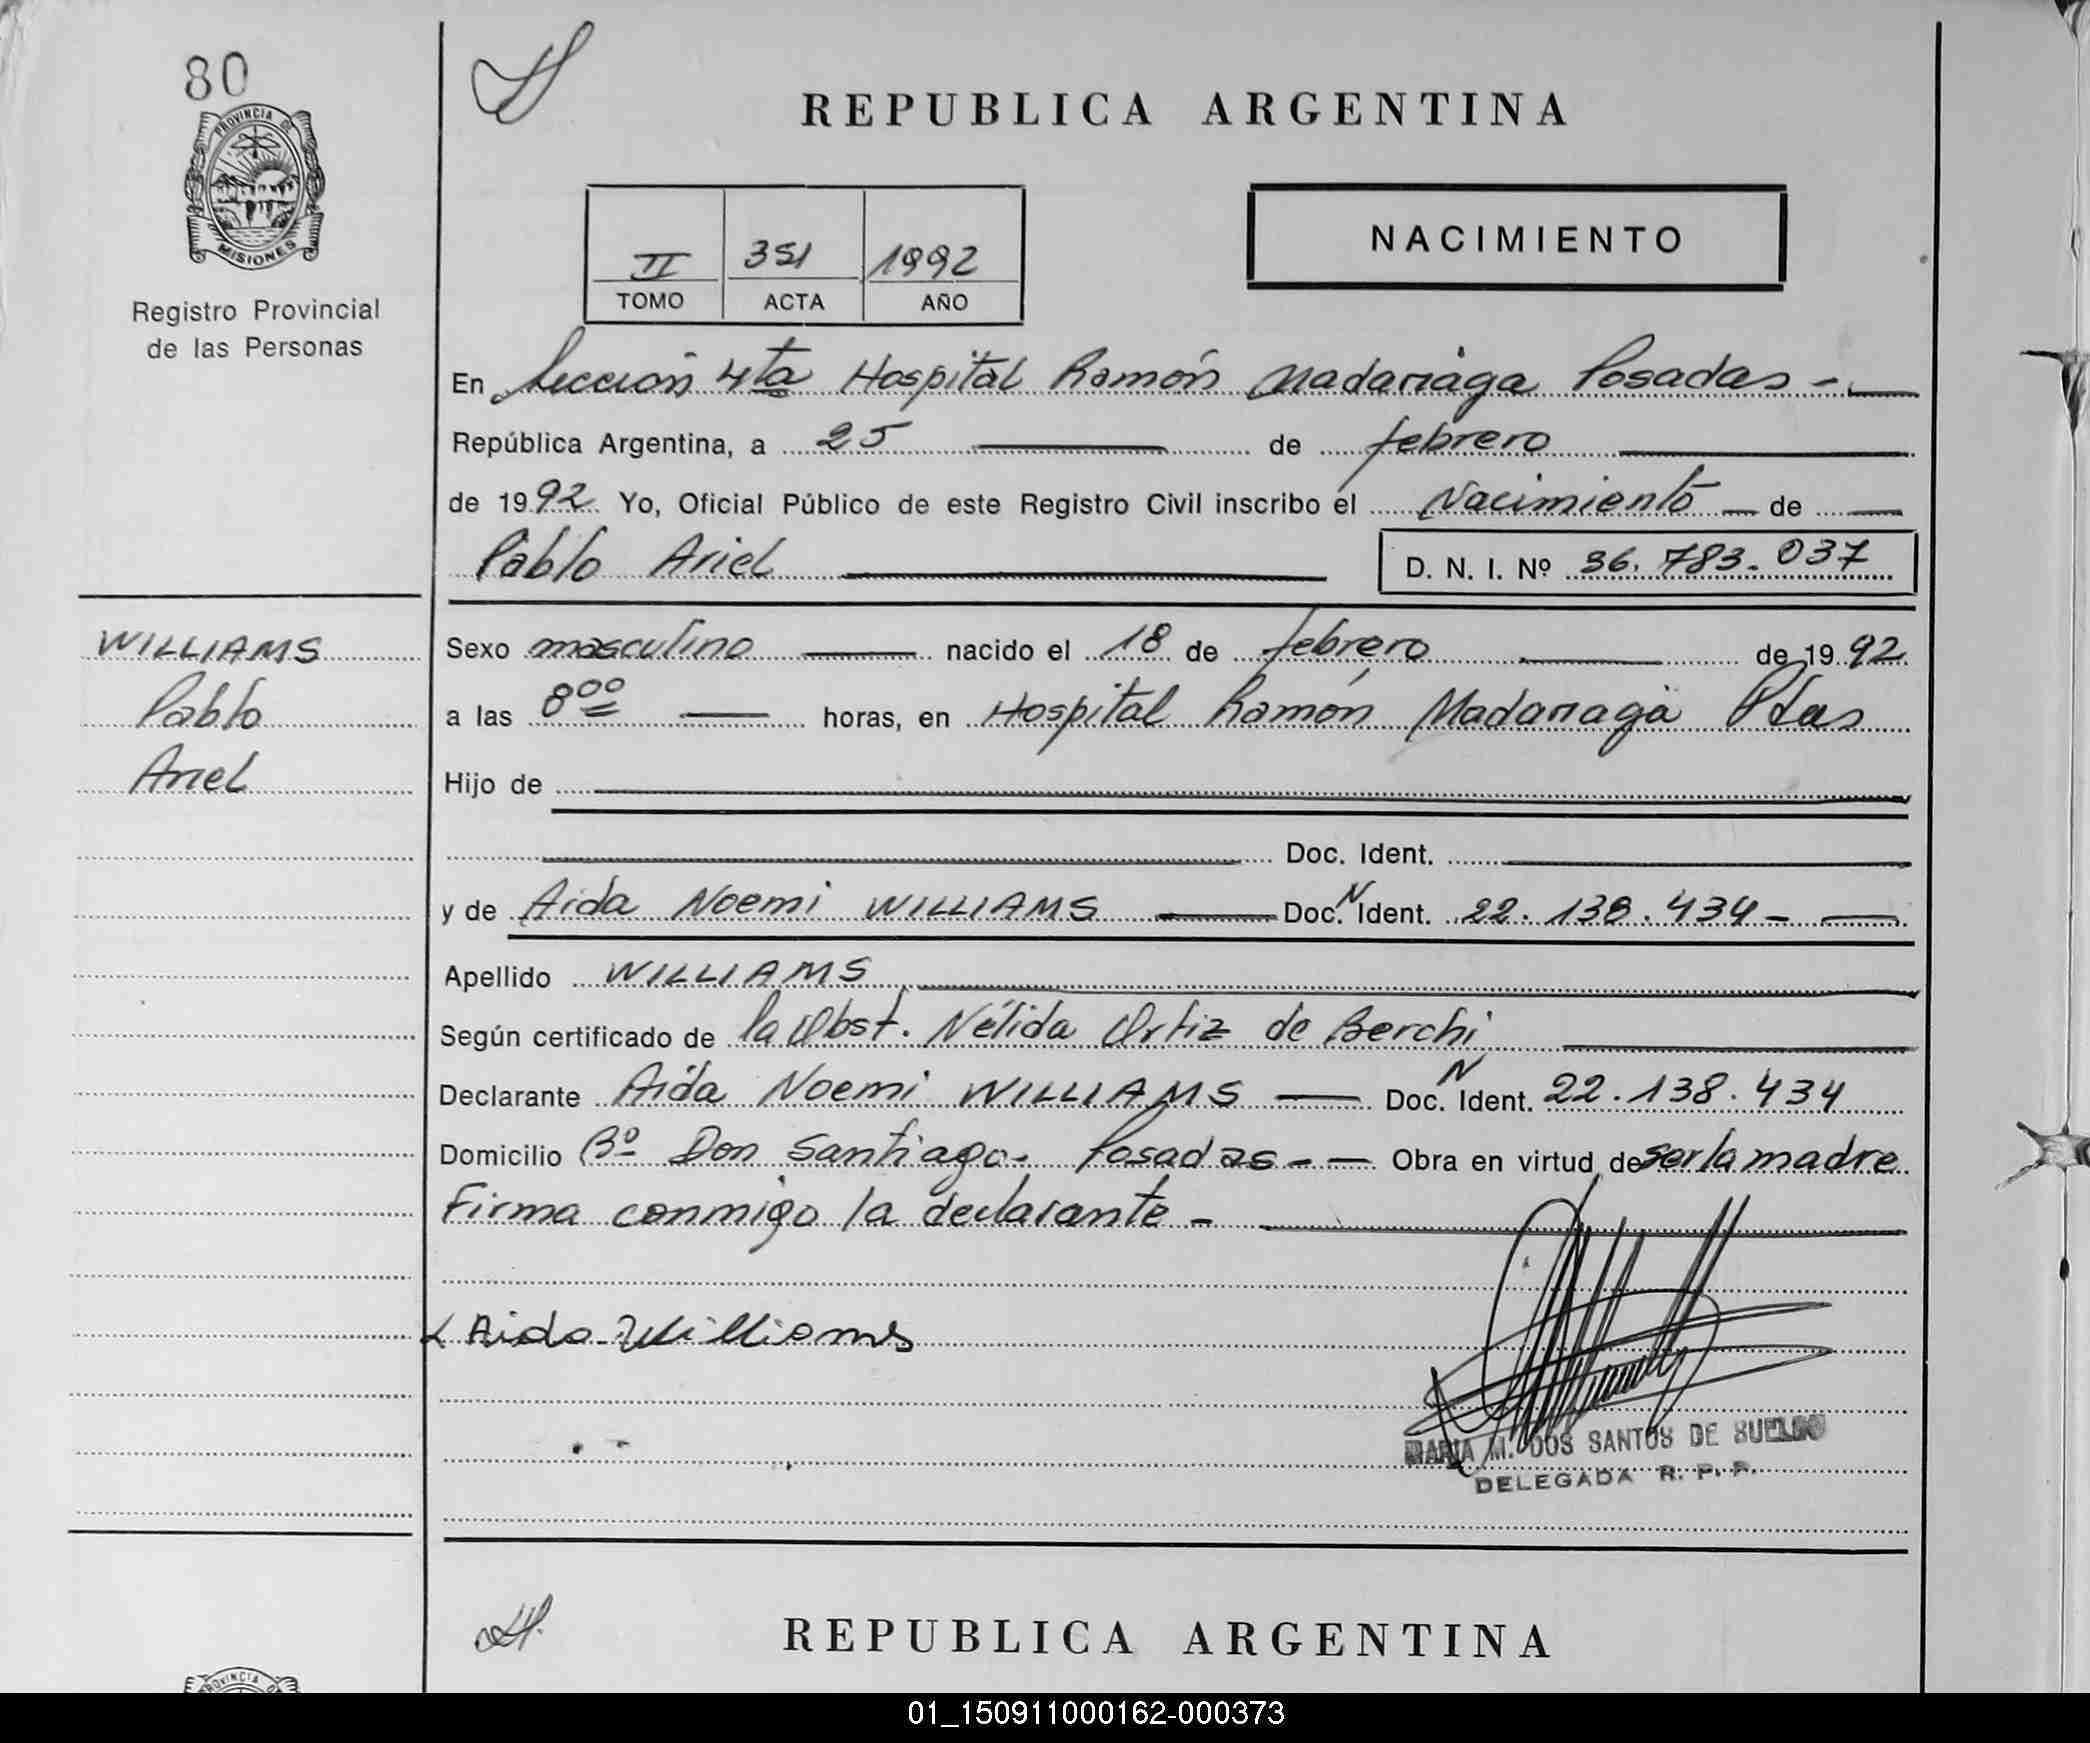 80
PROVINCIA DE
MISIONES
Registro Provincial
de las Personas
REPUBLICA ARGENTINA
NACIMIENTO
II 351 1992
TOMO ACTA AÑO
En Sección 4ta Hospital Ramón Madariaga Posadas -
República Argentina, a 25 de febrero
de 1992 Yo, Oficial Público de este Registro Civil inscribo el Nacimiento de
Pablo Ariel D. N. I. Nº 36.783.037
WILLIAMS
Pablo
Ariel
Sexo masculino nacido el 18 de febrero de 1992
a las 8ºº horas, en Hospital Ramón Madariaga Pdas
Hijo de
Doc. Ident.
y de Aida Noemi WILLIAMS Doc. N Ident. 22.138.434-
Apellido WILLIAMS
Según certificado de la Obst. Nélida Ortiz de Berchi
Declarante Aida Noemi WILLIAMS Doc. N Ident. 22.138.434
Domicilio Bº Don Santiago- Posadas - Obra en virtud de ser la madre
Firma conmigo la declarante -
Aida Williams
MARIA M. DOS SANTOS DE
DELEGADA R. P. P.
REPUBLICA ARGENTINA
PROVINCIA D
01_150911000162-000373